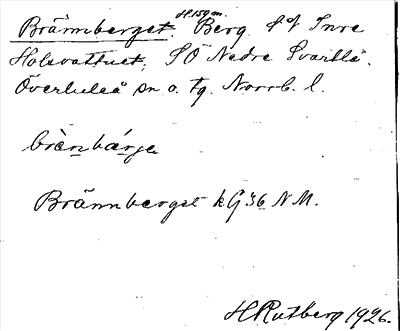 H. 159 m.
Brännberget. Berg. S of Inre
Holsvattnet, SÖ Nedre Svartlå.
Överluleå sn o. tg. Norrb. l.
bränbärje
Brännberget kG36 N M.
H Rutberg 1926.